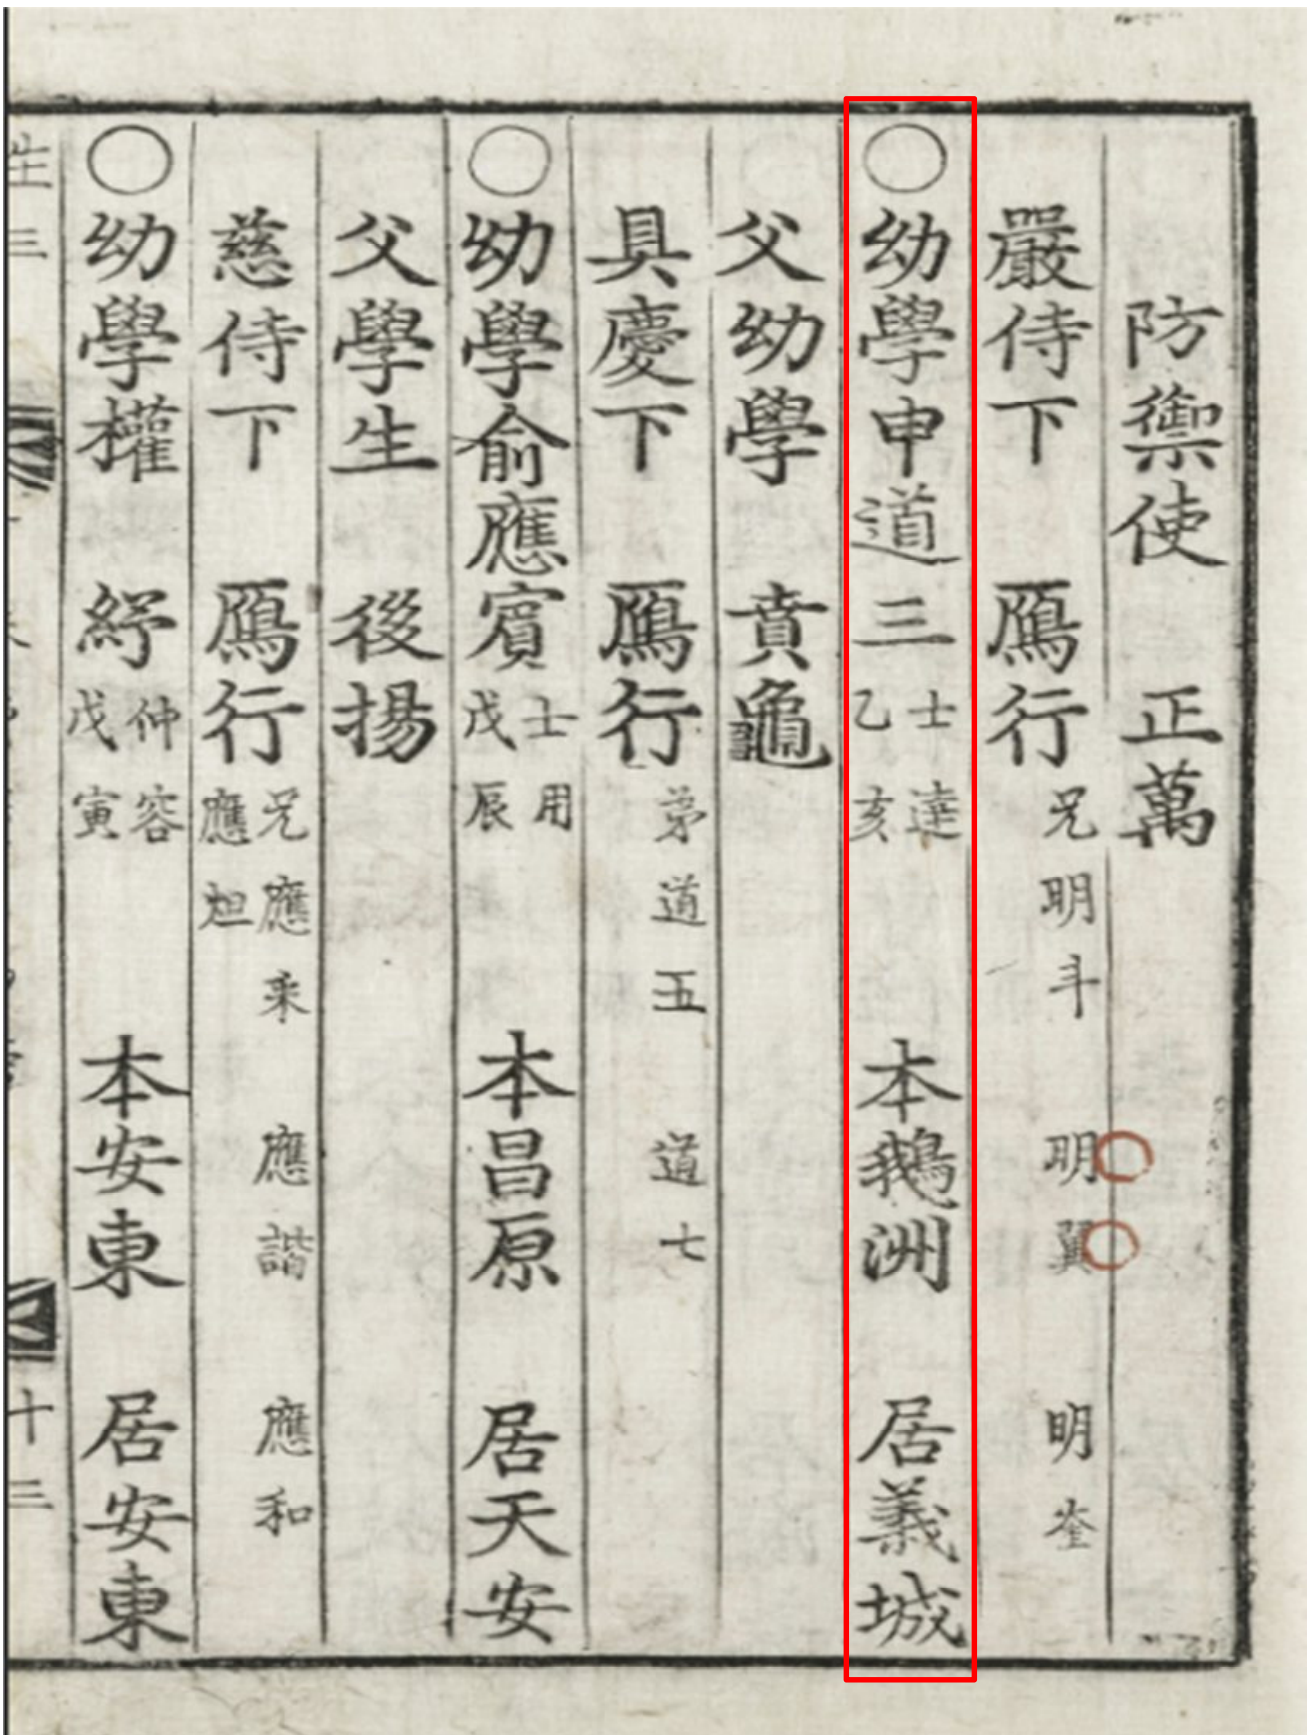 防禦使 正萬
嚴侍下 鴈行 兄明斗 明翼 明奎
○幼學申道三 士達 乙亥 本鵝洲 居義城
父幼學 賁龜
具慶下 鴈行 弟道五 道七
○幼學俞應賓 士用 戊辰 本昌原 居天安
父學生 後揚
慈侍下 鴈行 兄應來 應諧 應和 應烜
○幼學權 紓 仲容 戊寅 本安東 居安東
生三
十三